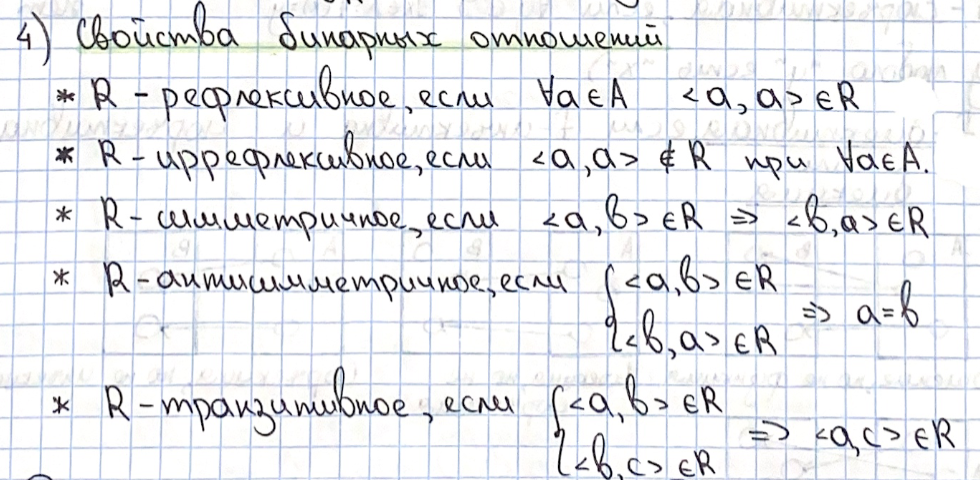 4) Свойства бинарных отношений
* R - рефлексивное, если ∀a∈A <a, a> ∈R
* R - иррефлексивное, если <a, a> ∉ R при ∀a∈A.
* R - симметричное, если <a, b> ∈R ⇒ <b, a> ∈R
* R - антисимметричное, если { <a, b> ∈R
<b, a> ∈R ⇒ a = b
* R - транзитивное, если { <a, b> ∈R
<b, c> ∈R ⇒ <a, c> ∈R